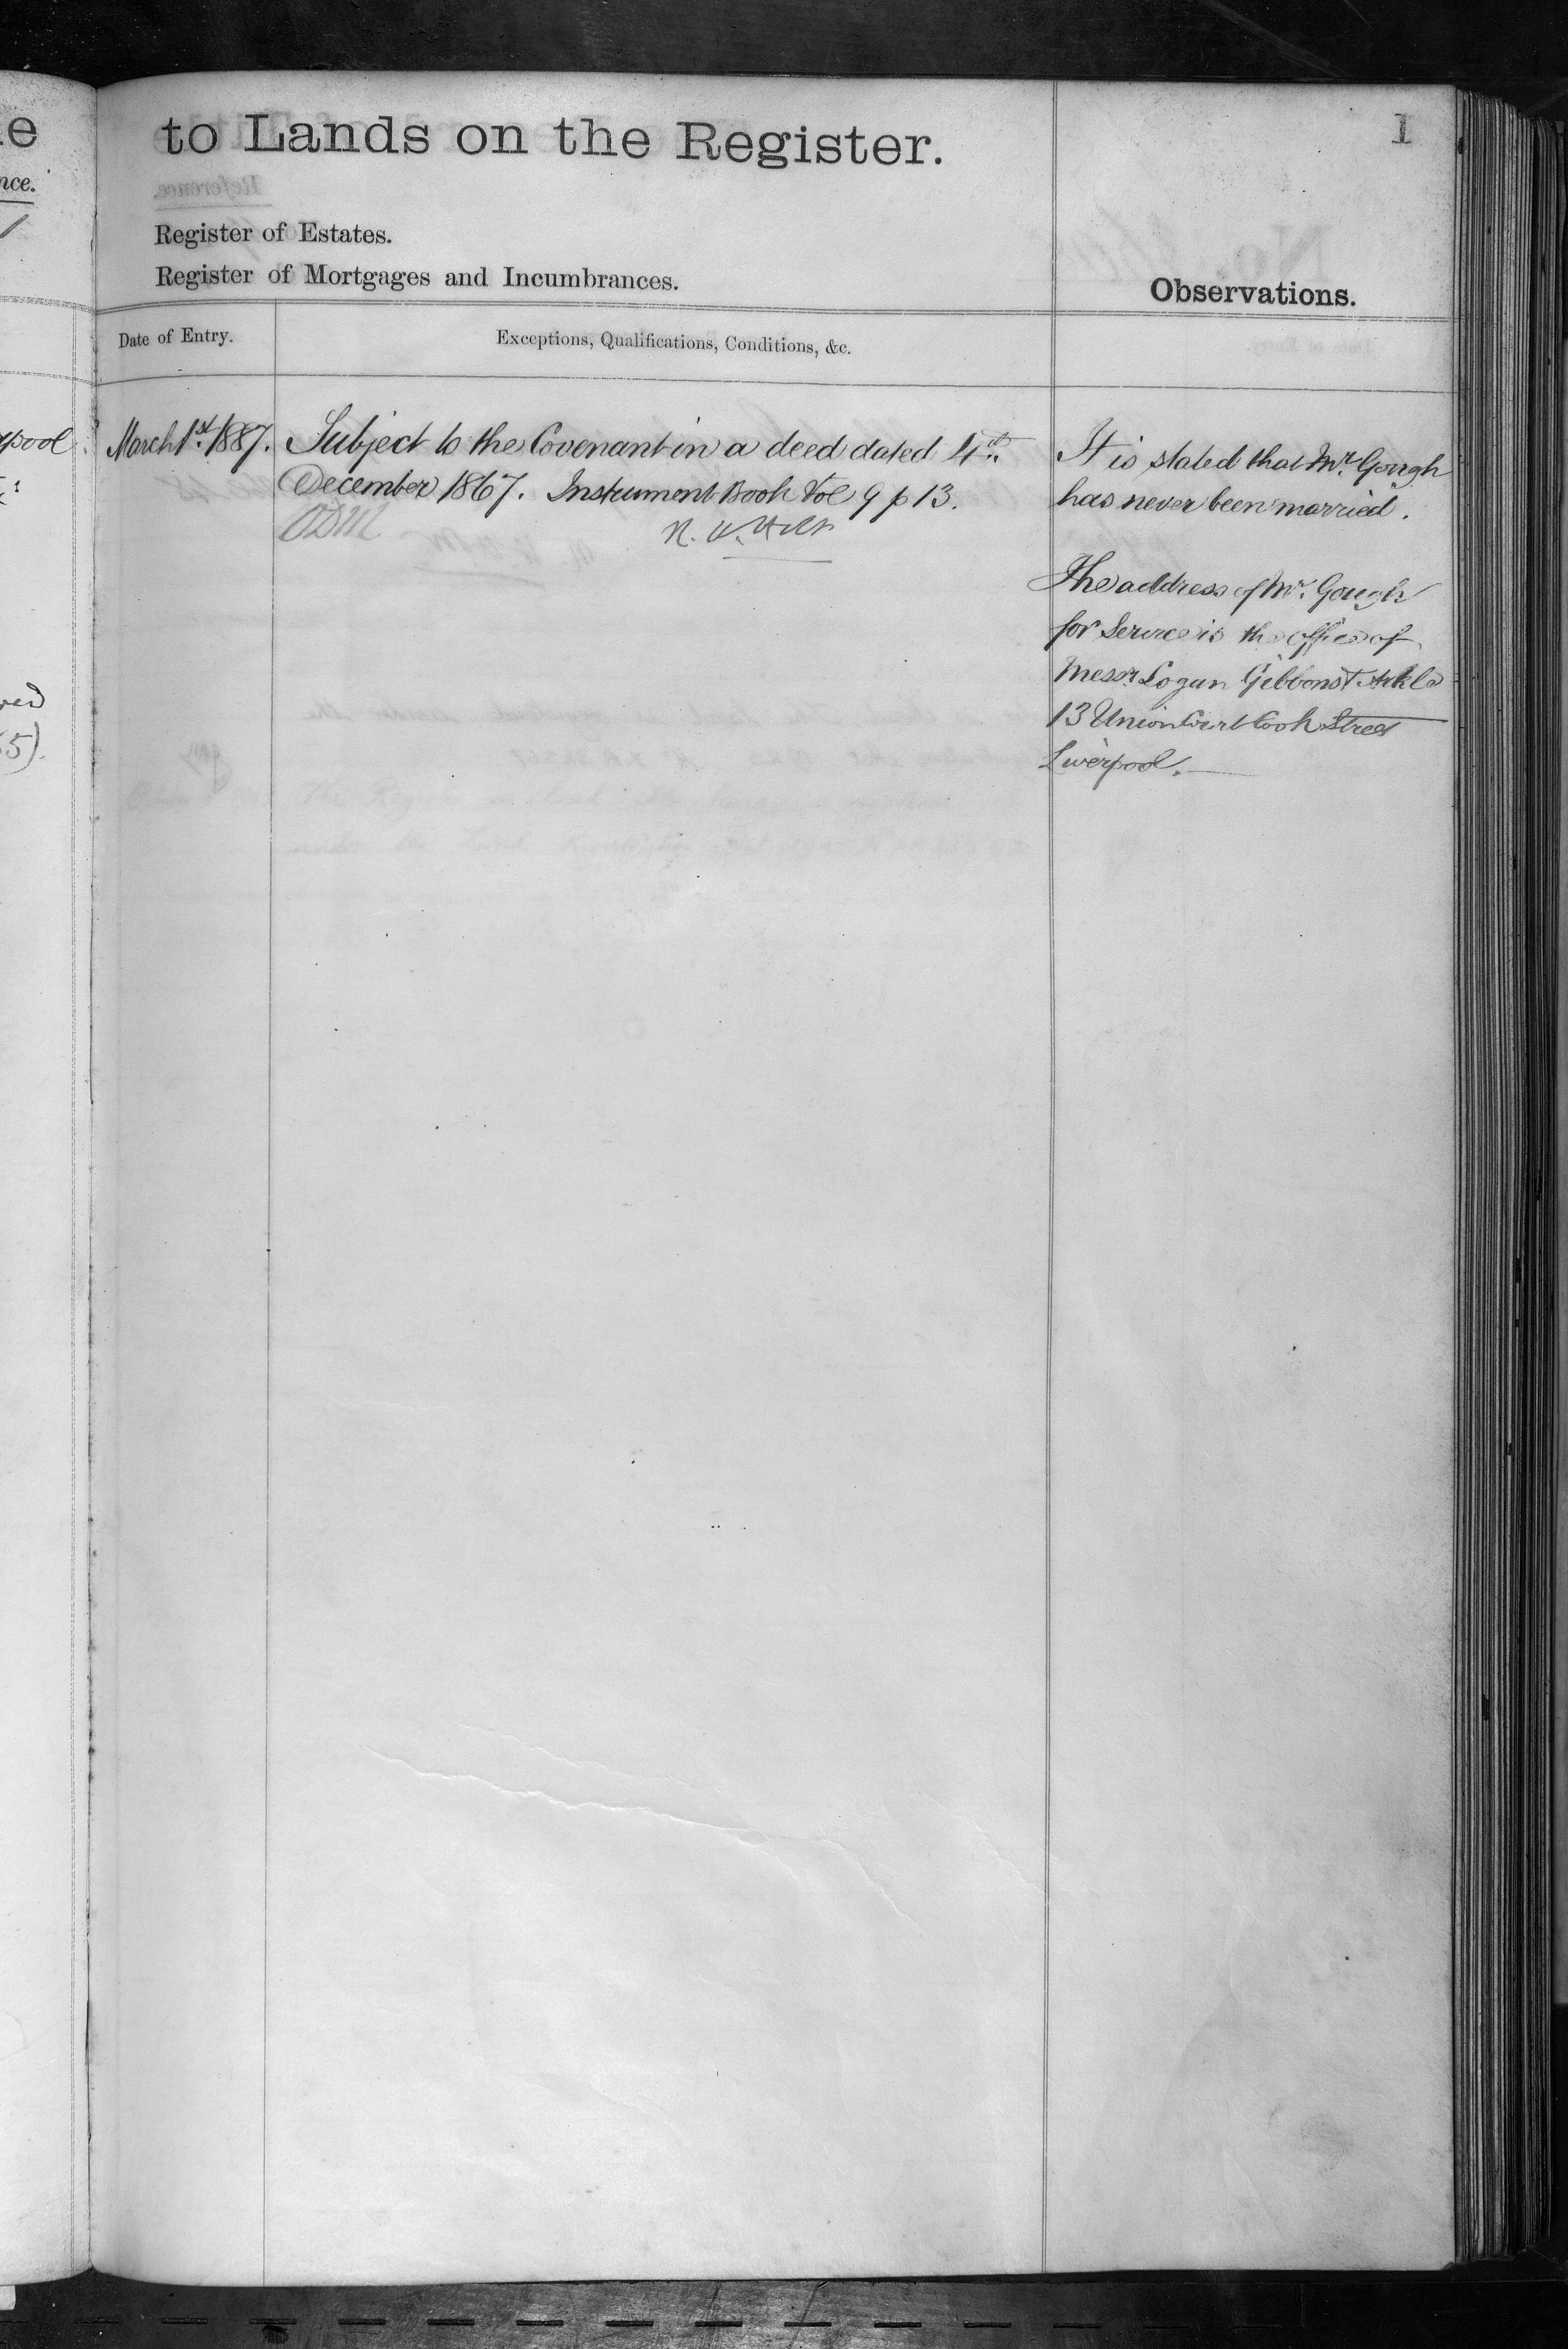 to Lands on the Register.
1
Register of Estates.
Register of Mortgages and Incumbrances.
Observations.
Date of Entry.
Exceptions, Qualifications, Conditions, &c.
March 1st 1887.
Subject to the Covenant in a deed dated 4th
December 1867. Instrument Book Vol 9 p 13.
It is stated that Mr. Gough
has never been married.
The address of Mr. Gough
for Service is the office of
Messrs Logan Gibbons &
13 Union Court Cook Street
Liverpool.